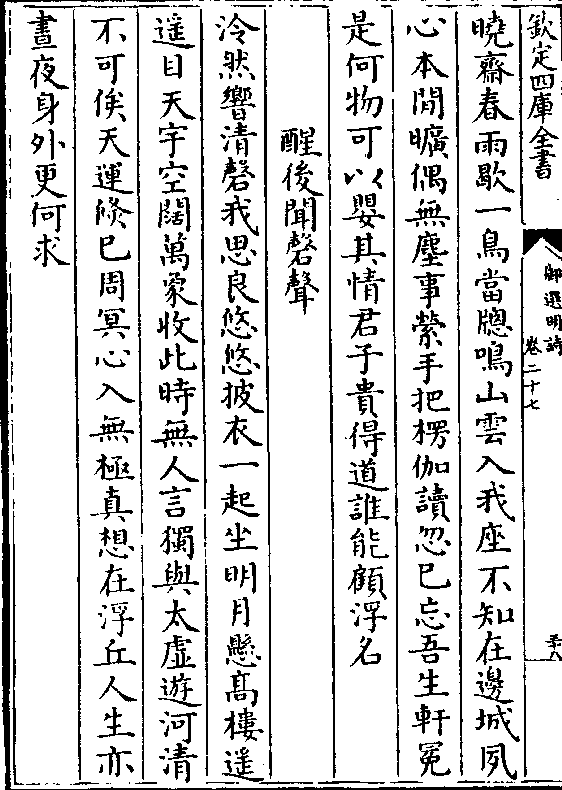 欽定四庫全書
御選明詩
卷二十七
三十八
曉齋春雨歇一鳥當牕鳴山雲入我座不知在邊城夙
心本閒曠偶無塵事縈手把楞伽讀忽已忘吾生軒冕
是何物可以嬰其情君子貴得道誰能顧浮名
醒後聞磬聲
泠然響清磬我思良悠悠披衣一起坐明月懸高樓遥
遥目天宇空闊萬象收此時無人言獨與太虛遊河清
不可俟天運倐已周冥心入無極真想在浮丘人生亦
晝夜身外更何求